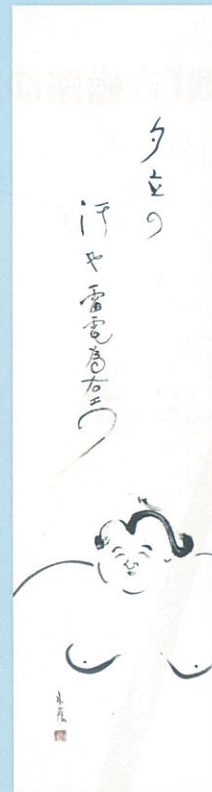 夕立の
汗や雷電為右エ門